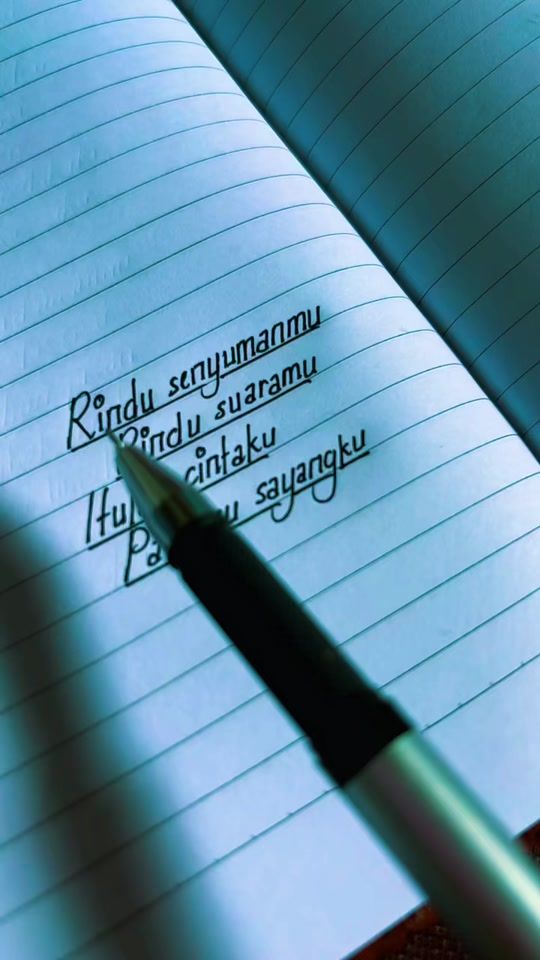 Rindu senyumanmu
Rindu suaramu
cintaku
sayangku